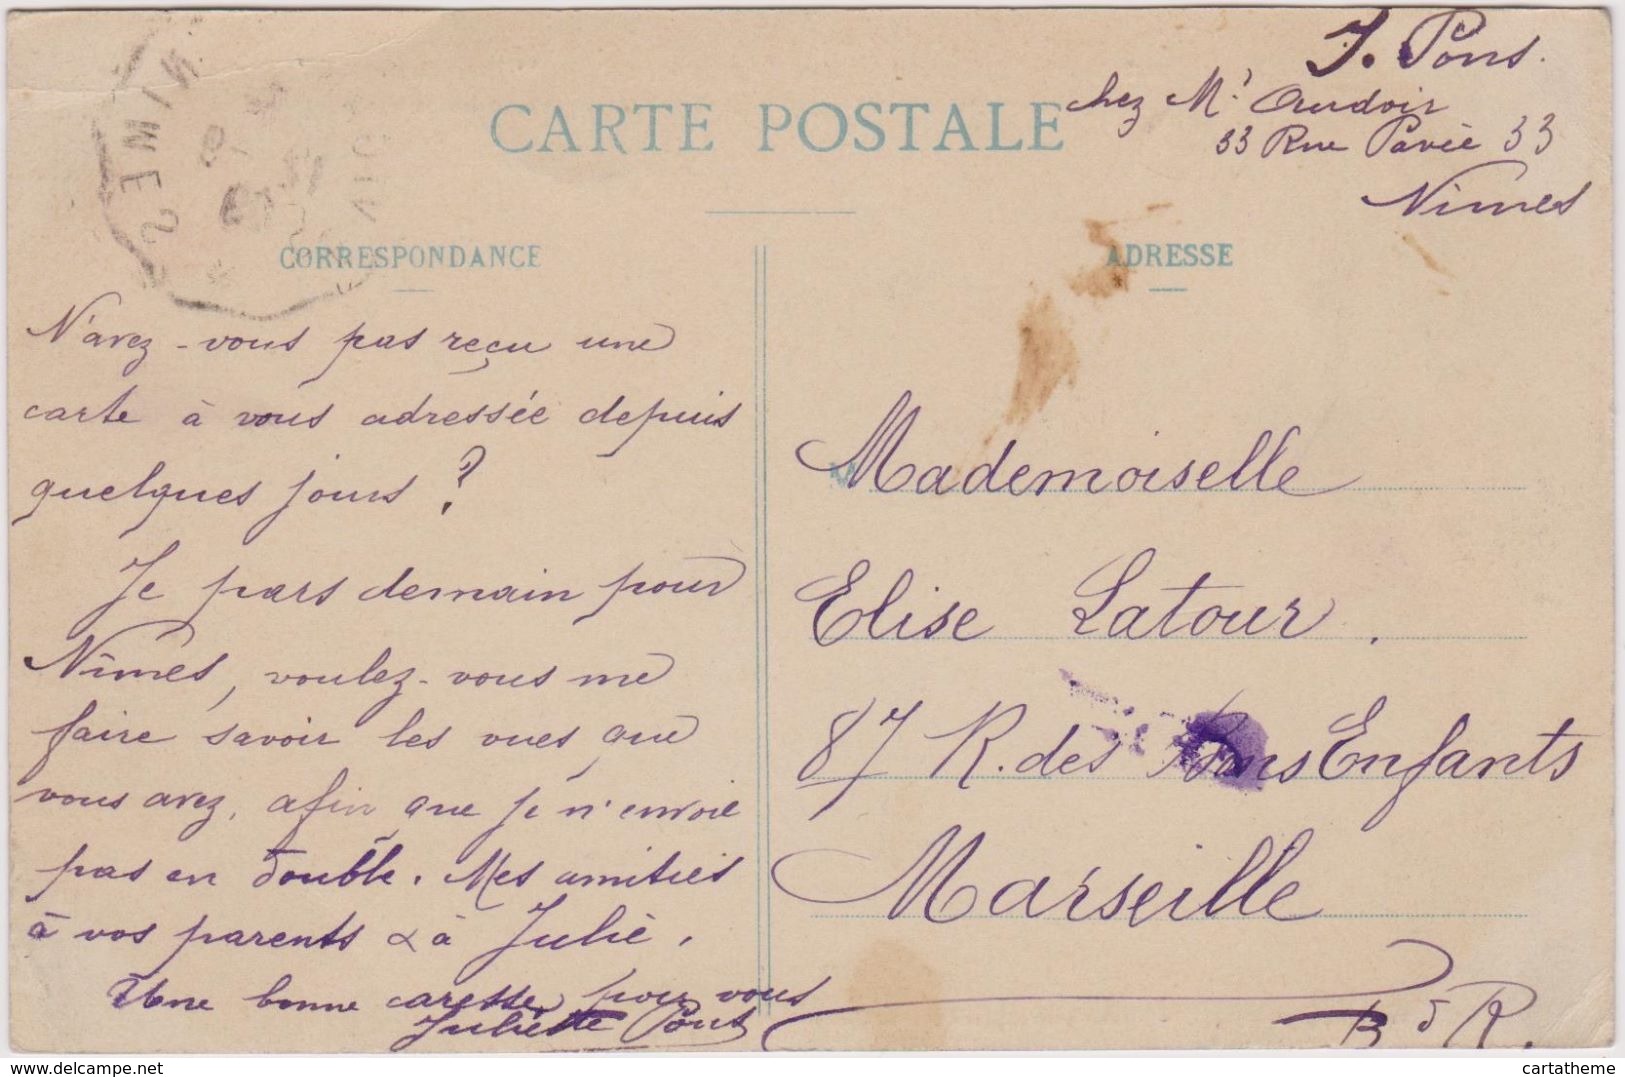 J. Pons.
chez Mr Audoir
33 Rue Pavée 33
Nimes
CARTE POSTALE
NIMES
CORRESPONDANCE
ADRESSE
N'avez-vous pas reçu une
carte à vous adressée depuis
quelques jours ?
Je pars demain pour
Nîmes, voulez-vous me
faire savoir les vues que
vous avez, afin que je n'envoie
pas en double. Mes amitiés
à vos parents & à Julie.
Une bonne caresse pour vous
Juliette Pons
Mademoiselle
Elise Latour.
87 R. des Bons Enfants
Marseille
B d R.
delcampe.net
cartatheme